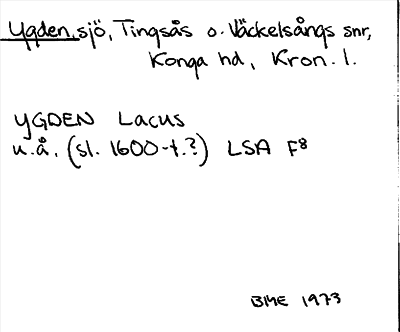 Ygden, sjö, Tingsås o. Väckelsångs snr,
Konga hd, Kron. l.
YGDEN Lacus
u.å. (sl. 1600-t.?) LSA F8
BME 1973